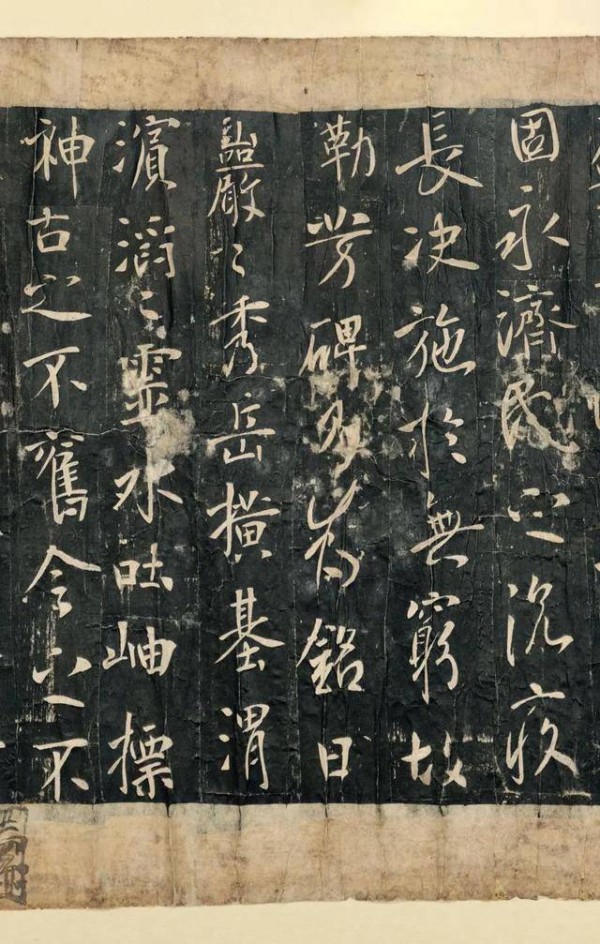 固永濟民之沉疾
長决施於無窮故
勒芳碑為銘曰
巖〻秀岳橫基渭
濱滔〻靈水吐岫標
神古之不舊今之不